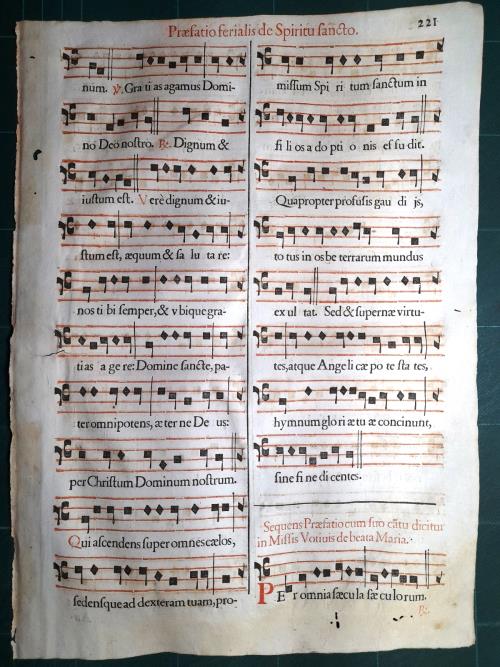 Præfatio ferialis de Spiritu sancto.
221
num. ℣. Gra ti as agamus Domi-
no Deo nostro. ℟. Dignum &
iustum est. Verè dignum & iu-
stum est, æquum & sa lu ta re:
nos ti bi semper, & vbique gra-
ti as a ge re: Domine sancte, pa-
ter omnipotens, æ ter ne De us:
per Christum Dominum nostrum.
Qui ascendens super omnes cælos,
sedensque ad dexteram tuam, pro-
missum Spi ri tum sanctum in
fi li os a do pti o nis ef fu dit.
Quapropter profusis gau di js,
to tus in orbe terrarum mundus
ex ul tat. Sed & supernæ virtu-
tes, atque Ange li cæ po te sta tes,
hymnum glo ri æ tu æ concinunt,
sine fi ne di centes.
Sequens Præfatio cum suo cãtu dicitur
in Missis Votiuis de beata Maria.
PE r omnia sæcu la sæ cu lo rum.
℟.